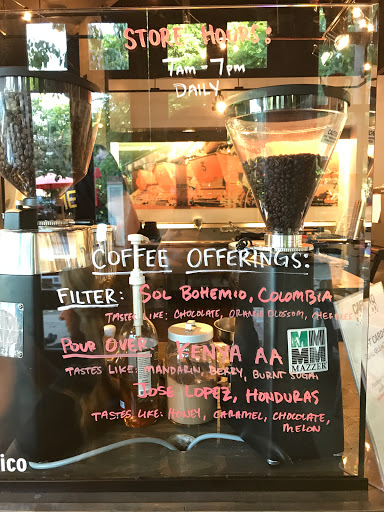 STORE HOURS:
7am - 7pm
DAILY
COFFEE OFFERINGS:
FILTER: SOL BOHEMIO, COLOMBIA
TASTES LIKE: CHOCOLATE, ORANGE BLOSSOM,
POUR OVER: KENYA AA
TASTES LIKE: MANDARIN, BERRY, BURNT SUGAR
JOSE LOPEZ, HONDURAS
TASTES LIKE: HONEY, CARAMEL, CHOCOLATE,
MELON
MAZZER
ico